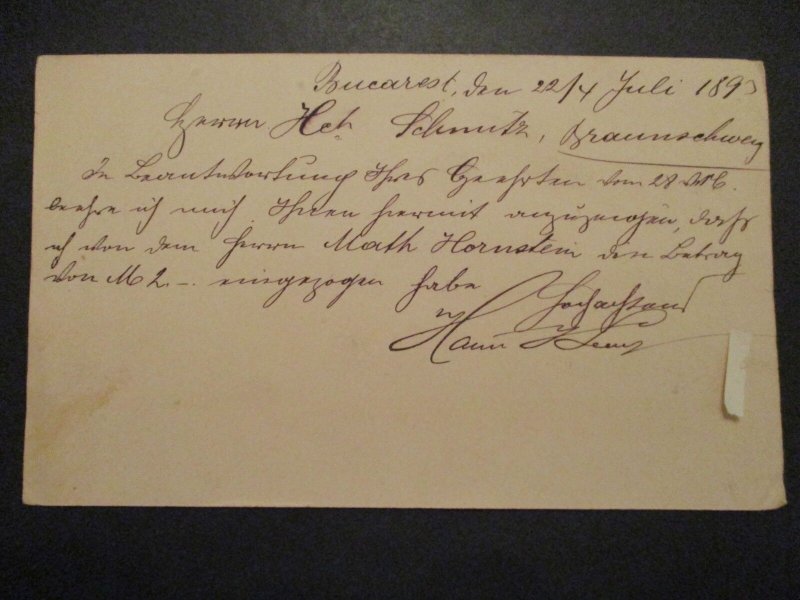 Bucarest, den 22/4 Juli 1893
Herrn Hch Schmitz, Braunschweig
In Beantwortung Ihres Geehrten vom 28
beehre ich mich Ihnen hiermit anzuzeigen, dass
ich von dem Herrn Math Hornstein den Betrag
von M 2.– eingezogen habe
Hochachtend